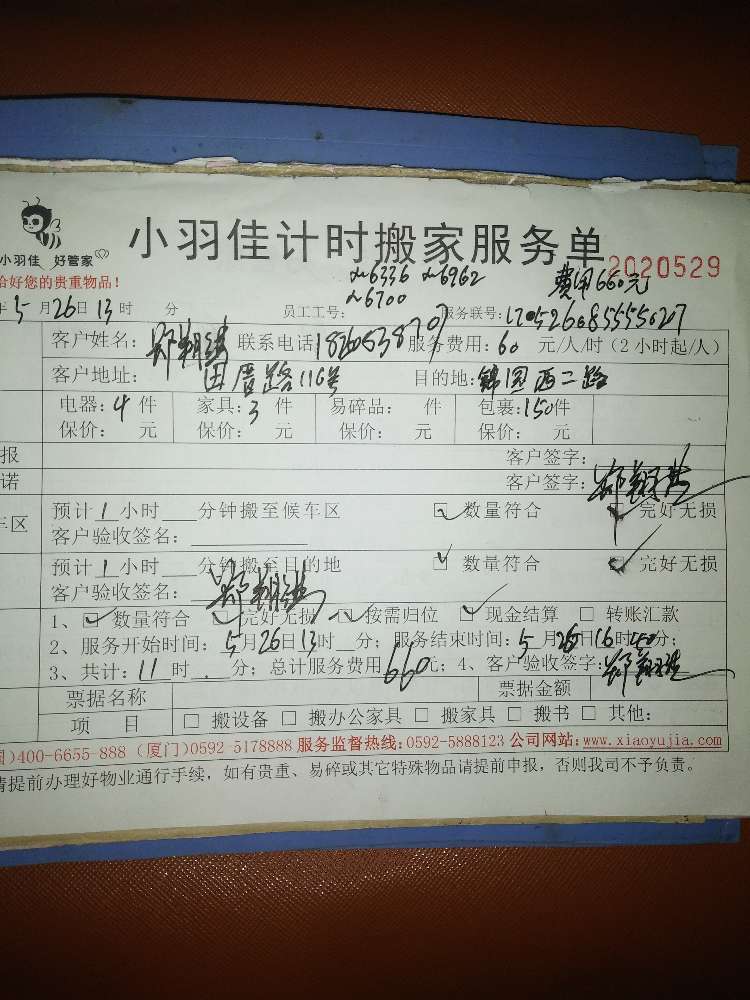 小羽佳 好管家
小羽佳计时搬家服务单
2020529
给好您的贵重物品！
~6336 ~6962
~6700
费用660元
年5月26日13时 分 员工工号： 服务联号：
客户姓名： 联系电话 服务费用：60 元/人/时（2小时起/人）
客户地址： 田厝路116号 目的地：锦园西二路
电器：4件 家具：3件 易碎品： 件 包裹：150件
保价： 元 保价： 元 保价： 元 保价： 元
报 客户签字：
诺 客户签字：
车区 预计1小时 分钟搬至候车区 ☑ 数量符合 ☑ 完好无损
客户验收签名：
预计1小时 分钟搬至目的地 ☑ 数量符合 ☑ 完好无损
客户验收签名：
1、☑ 数量符合 ☑ 完好无损 ☑ 按需归位 ☑ 现金结算 □ 转账汇款
2、服务开始时间：5月26日13时 分；服务结束时间：5月26日16时 分；
3、共计：11时 分；总计服务费用660元；4、客户验收签字：
票据名称 票据金额
项 目 □ 搬设备 □ 搬办公家具 □ 搬家具 □ 搬书 □ 其他：
)400-6655-888 (厦门)0592-5178888 服务监督热线:0592-5888123 公司网站:www.xiaoyujia.com
请提前办理好物业通行手续，如有贵重、易碎或其它特殊物品请提前申报，否则我司不予负责。